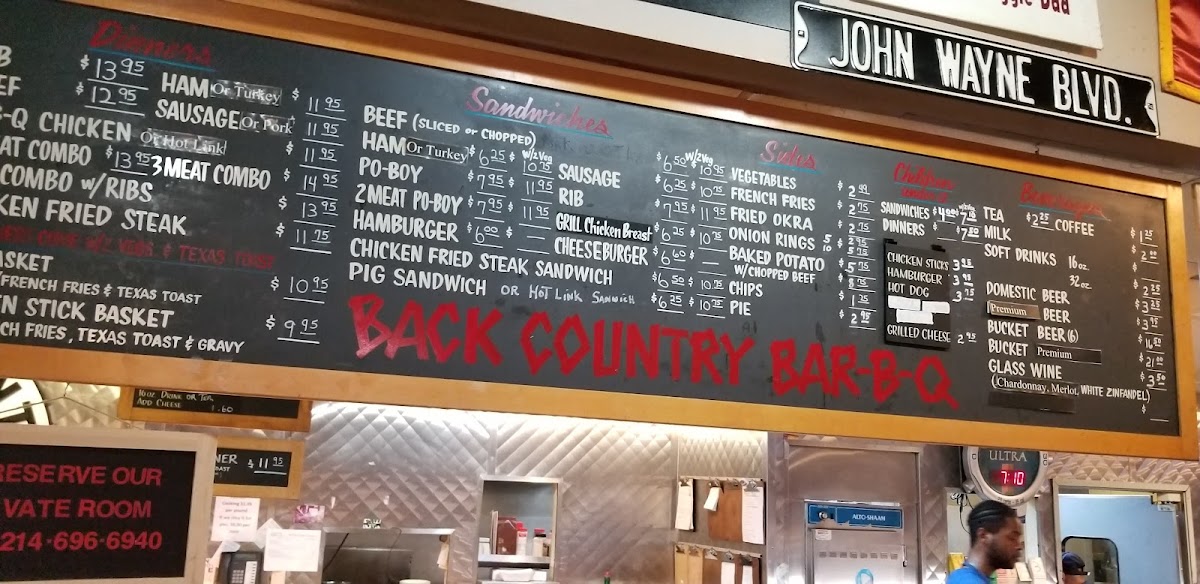 ggie Dad
JOHN WAYNE BLVD.
Dinners
B $13.95
EF $12.95
B-Q CHICKEN
AT COMBO $13.95
COMBO w/RIBS
KEN FRIED STEAK
COME W/ VEGS & TEXAS TOAST
ASKET $10.95
FRENCH FRIES & TEXAS TOAST
N STICK BASKET $9.95
CH FRIES, TEXAS TOAST & GRAVY
HAM Or Turkey $11.95
SAUSAGE Or Pork $11.95
Or Hot Link $11.95
3 MEAT COMBO $14.95
$13.95
$11.75
Sandwiches
BEEF (SLICED or CHOPPED)
w/2 Veg
HAM Or Turkey $6.25 $10.75
PO-BOY $7.95 $11.95
2 MEAT PO-BOY $7.95 $11.95
HAMBURGER $6.00
CHICKEN FRIED STEAK SANDWICH
PIG SANDWICH OR HOT LINK SANDWICH
w/2 Veg
$6.50 $10.95
SAUSAGE $6.25 $10.75
RIB $7.95 $11.95
GRILL Chicken Breast $6.25 $10.75
CHEESEBURGER $6.60
$6.50 $10.75
$6.25 $10.75
Sides
VEGETABLES $2.99
FRENCH FRIES $2.75
FRIED OKRA $2.75
ONION RINGS
BAKED POTATO $5.75
W/CHOPPED BEEF
CHIPS $1.35
PIE $2.95
Childrens
SANDWICHES $4.00
DINNERS
CHICKEN STICKS
HAMBURGER
HOT DOG 3.75
GRILLED CHEESE 2.95
Beverages
TEA $2.25 COFFEE $1.25
MILK $2.00
SOFT DRINKS 16 oz. $2.25
32 oz. $3.25
DOMESTIC BEER
Premium BEER $3.95
BUCKET BEER (6) $16.50
BUCKET Premium $21.00
GLASS WINE $3.50
(Chardonnay, Merlot, WHITE ZINFANDEL)
$
BACK COUNTRY BAR-B-Q
16 oz DRINK OR TEA
ADD CHEESE 1.60
NER $11.95
RESERVE OUR
VATE ROOM
214-696-6940
ALTO-SHAAM
ULTRA
7:10